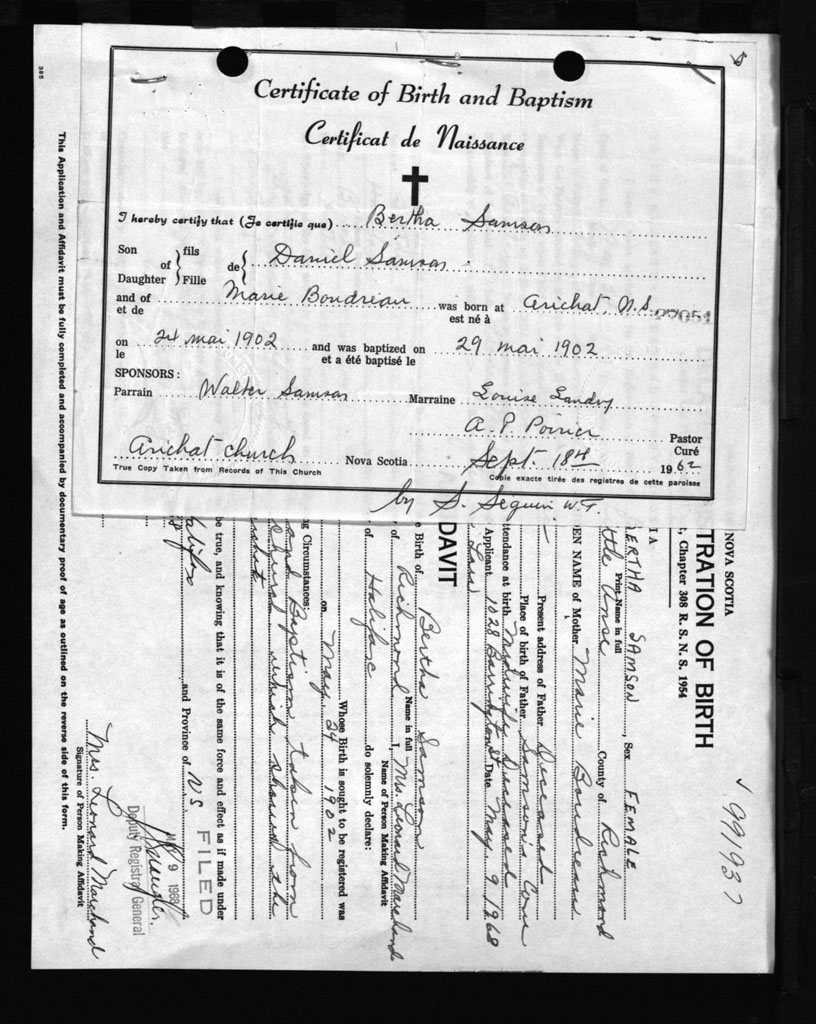 Certificate of Birth and Baptism
Certificat de Naissance
I hereby certify that (Je certifie que) Bertha Samson
Son of fils de Daniel Samson
Daughter Fille
and of Marie Boudreau was born at Arichat, N.S. 27051
et de est né à
on 24 mai 1902 and was baptized on 29 mai 1902
le et a été baptisé le
SPONSORS:
Parrain Walter Samson Marraine Louise Landry
A. P. Poirier Pastor
Curé
Arichat church Nova Scotia Sept. 18th 1962
True Copy Taken from Records of This Church Copie exacte tirée des registres de cette paroisse
by S. Seguin W.F.
385
This Application and Affidavit must be fully completed and accompanied by documentary proof of age as outlined on the reverse side of this form.
991937
NOVA SCOTIA
TRATION OF BIRTH
, Chapter 308 R. S. N. S. 1954
BERTHA SAMSON, Sex FEMALE
Print Name in full
ttle Anse County of Richmond
DEN NAME of Mother Marie Boudreau
Present address of Father Deceased
Place of birth of Father Samson's Cove
ttendance at birth Midwife Deceased
Applicant 1028 Barrington St Date May. 9 1968
DAVIT
e Birth of Bertha Samson
Name in full
of Richmond I, Mrs Leonard Marchand
Name of Person Making Affidavit
of Halifax do solemnly declare:
Whose Birth is sought to be registered was
on May 24 1902
ng Circumstances:
and Baptism taken from
church which showed the
be true, and knowing that it is of the same force and effect as if made under
alifax and Province of NS
FILED
MAY 9 1968
Deputy Registrar General
Mrs. Leonard Marchand
Signature of Person Making Affidavit